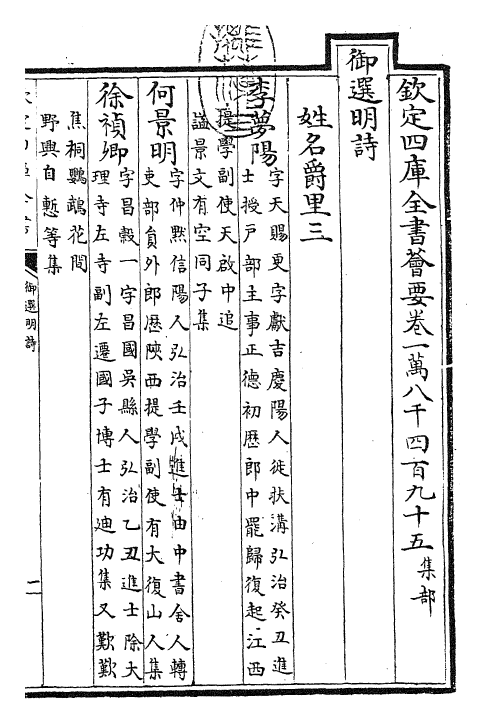 欽定四庫全書薈要卷一萬八千四百九十五 集部
御選明詩
姓名爵里三
李夢陽 字天賜更字獻吉慶陽人徙扶溝弘治癸丑進
士授戶部主事正德初歷郎中罷歸復起江西
提學副使天啟中追
諡景文有空同子集
何景明 字仲黙信陽人弘治壬戌進士由中書舍人轉
吏部員外郎歷陝西提學副使有大復山人集
徐禎卿 字昌糓一字昌國吳縣人弘治乙丑進士除大
理寺左寺副左遷國子博士有迪功集又歎歎
焦桐鸚鵡花間
野興自慙等集
御選明詩